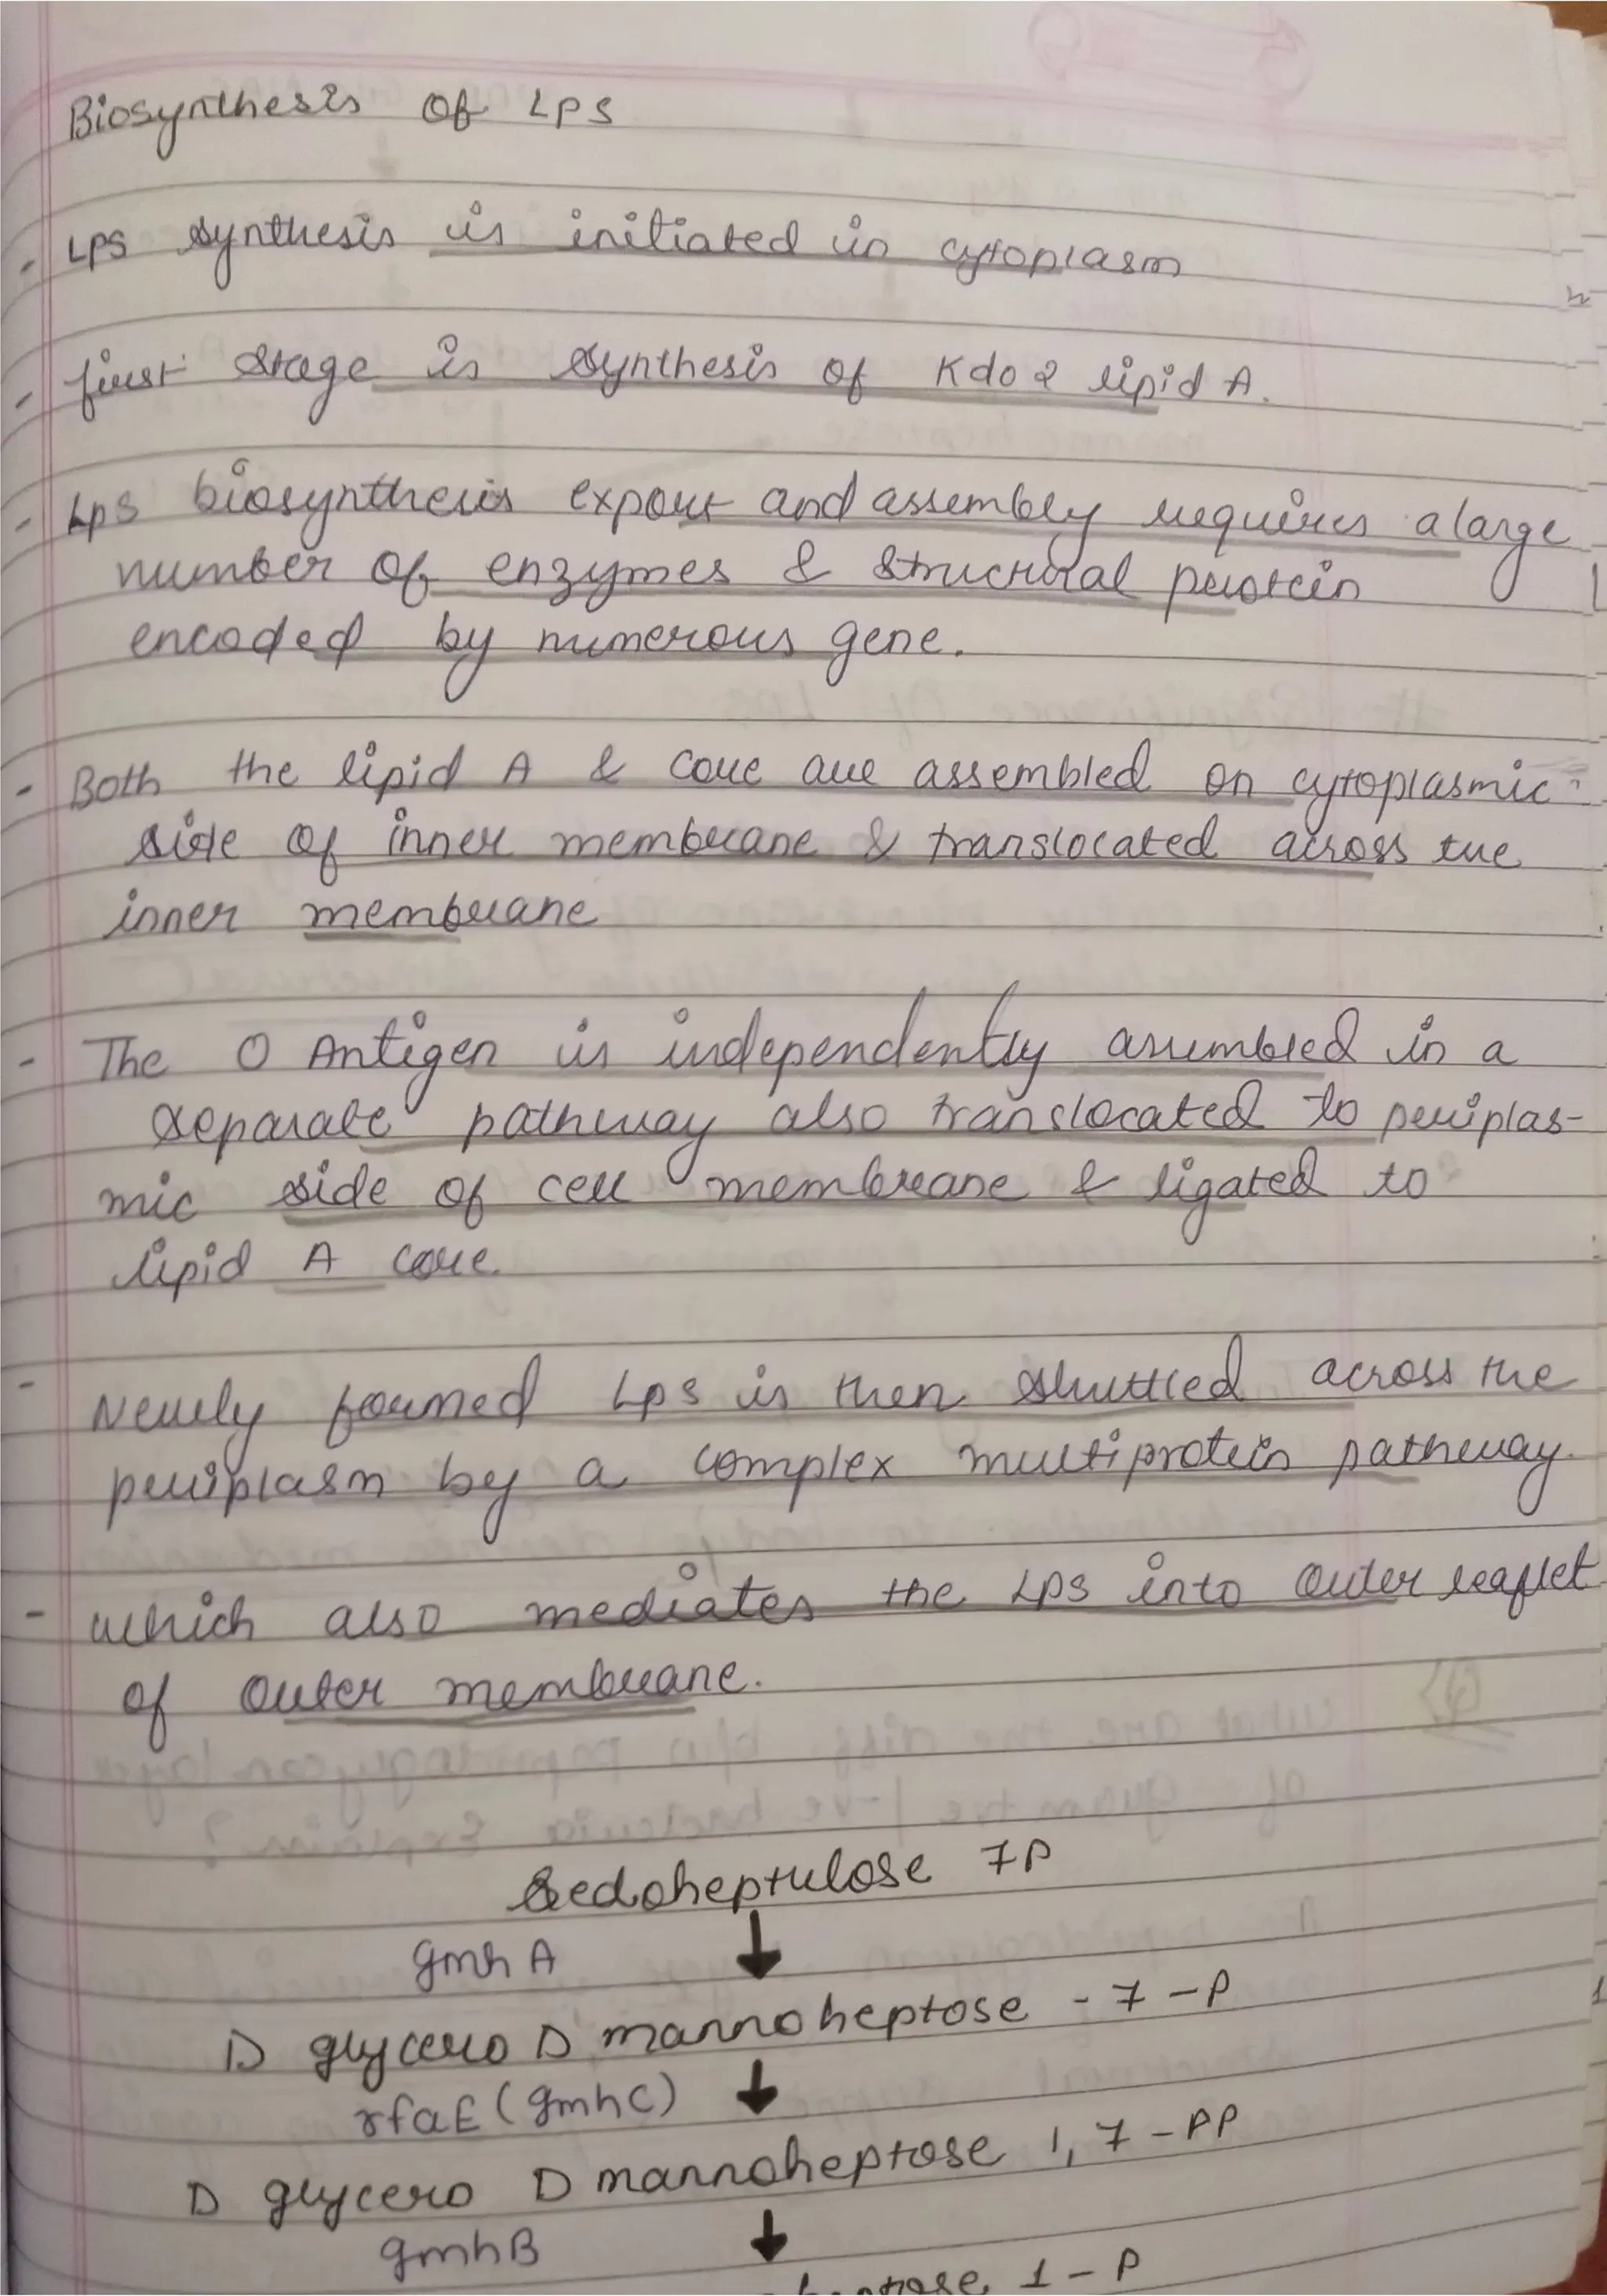 Biosynthesis of LPS
- LPS synthesis is initiated in cytoplasm
- first stage is synthesis of Kdo2 lipid A.
- LpS biosynthesis export and assembly requires a large
number of enzymes & structural protein
encoded by numerous gene.
- Both the lipid A & core are assembled on cytoplasmic
side of inner membrane & translocated across the
inner membrane
- The O Antigen is independently assembled in a
separate pathway also translocated to periplas-
mic side of cell membrane & ligated to
lipid A core
- Newly formed LpS is then shuttled across the
periplasm by a complex multiprotein pathway.
- which also mediates the LPS into outer leaflet
of outer membrane.
Sedoheptulose 7P
gmhA ↓
D glycero D mannoheptose - 7 - P
rfaE (gmhC) ↓
D glycero D mannoheptose 1, 7 - PP
gmhB ↓
1 - P